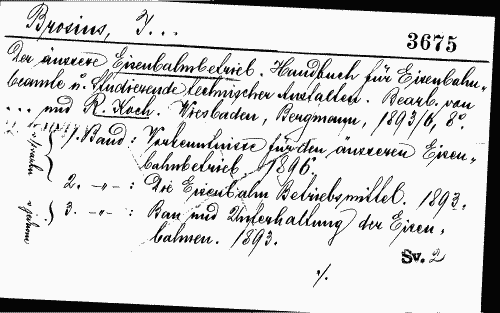 Brosius, J...
3675
Der äussere Eisenbahnbetrieb. Handbuch für Eisenbahn-
beamte u. Studierende technischer Anstalten. Bearb. von
... und R. Koch. Wiesbaden, Bergmann, 1893/6, 8°.
1. Band: Vorkenntnisse für den äusseren Eisen-
bahnbetrieb 1896.
2. -"- : Die Eisenbahn Betriebsmittel. 1893.
3. -"- : Bau und Unterhaltung der Eisen-
bahnen. 1893.
Sv. 2
./.